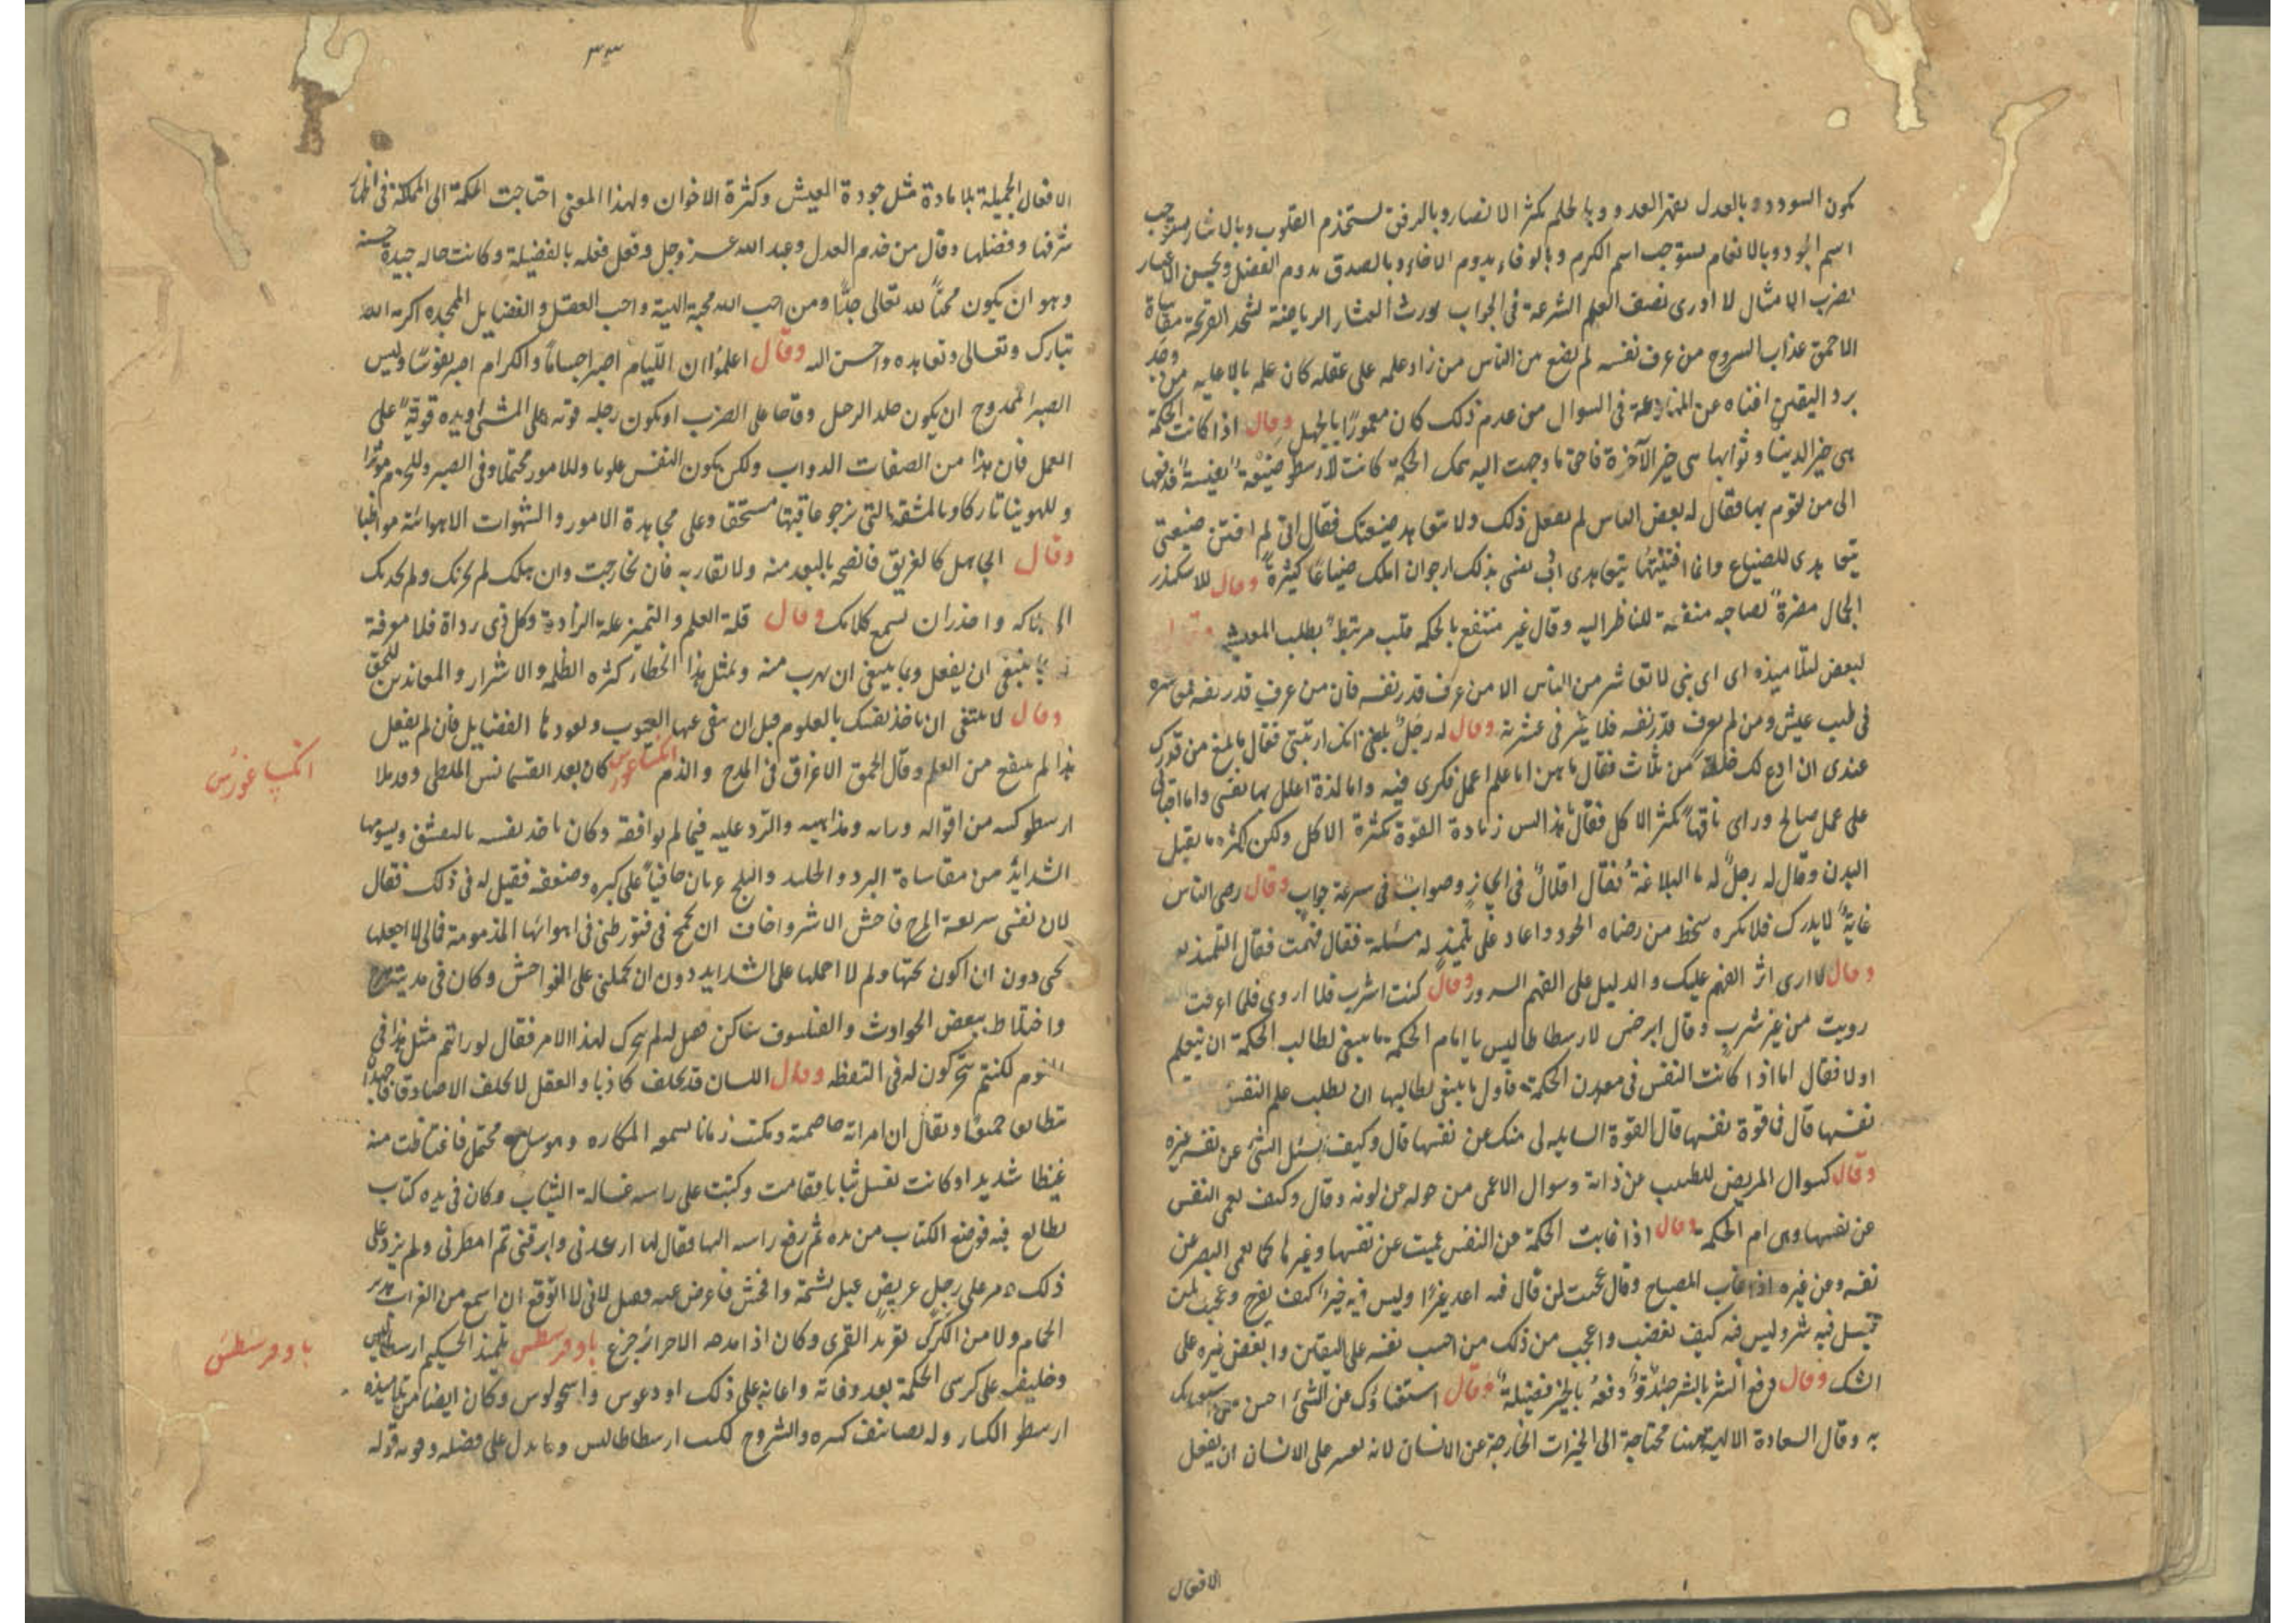 يكون السودد وبالعدل يقهر العدو وبالحلم يكثر الانصار وبالرفق يستخدم القلوب وبالايثار يستوجب
اسم الجود وبالانعام يستوجب اسم الكرم وبالوفاء يدوم الاخاء وبالصدق يدوم الفضل وبحسن الاعتبار
تضرب الامثال لا ادرى نصف العلم السرعة فى الجواب يورث العثار الرياضة تشحذ القريحة مقاساة
الاحمق عذاب الروح من عرف نفسه لم يضع بين الناس من زاد علمه على عقله كان علمه وبالا عليه من وجد
برد اليقين اغناه عن المنازعة فى السوال من عدم ذلك كان مغمورًا بالجهل وقال اذا كانت الحكمة
هى خير الدنيا وثوابها هى خير الآخرة فاحق ما وجهت اليه همك الحكمة كانت لارسطو ضيعة نفيسة فدفعها
الى من يقوم بها فقال له بعض الناس لم يفعل ذلك ولا تتعاهد ضيعتك فقال انى لم اقتن ضيعتى
بتعاهدى للضياع وانما اقتنيتها بتعاهدى ادب نفسى بذلك ارجو ان املك ضياعًا كثيرة وقال للاسكندر
الجمال مضرة لصاحبه منفعة للناظر اليه وقال غير منتفع بالحكمة قلب مرتبط بطلب المعيشة
لبعض تلاميذه اى اى بنى لا تعاشر من الناس الا من عرف قدر نفسه فان من عرف قدر نفسه
فى طيب عيش ومن لم يعرف قدر نفسه فلا خير فى عشرته وقال له رجل بلغنى انك اغتبتنى فقال ما بلغ من قدرك
عندى ان ادع لك خلة من ثلاث فقال ما هن اما علم اعمل فكرى فيه واما لذة اعلل بها نفسى واما اقبالى
على عمل صالح وراى ناقهًا يكثر الاكل فقال يا هذا ليس زيادة القوة بكثرة الاكل ولكن بكثرة ما يقبل
البدن وقال له رجل له ما البلاغة فقال اقلال فى ايجاز وصواب فى سرعة جواب وقال رضى الناس
غاية لا يدرك فلا تكره سخط من رضاه الجور واعاد على تلميذ له مسئلة فقال فهمت فقال التلميذ نعم
وقال لا ارى اثر الفهم عليك والدليل على الفهم السرور وقال كنت اشرب فلا اروى فلما عرفت الله
رويت من غير شرب وقال ابرخس لارسطاطاليس يا امام الحكمة ما ينبغى لطالب الحكمة ان يتعلم
اولا فقال اما اذا كانت النفس هى معدن الحكمة فاول ما ينبغى لطالبها ان يطلب علم النفس
نفسها قال فما قوة نفسها قال القوة السايلة لى منك عن نفسها قال وكيف يسئل الشئ عن نفسه غيره
وقال كسوال المريض للطبيب عن ذاته وسوال الاعمى من حوله عن لونه وقال وكيف تعمى النفس
عن نفسها وهى ام الحكمة وقال اذا غابت الحكمة عن النفس عميت عن نفسها وغيرها كما يعمى البصر عن
نفسه وعن غيره اذا غاب المصباح وقال عجبت لمن قال فيه احد خيرًا وليس فيه خير كيف يفرح وعجبت لمن
قيل فيه شر وليس فيه كيف يغضب واعجب من ذلك من احب نفسه على اليقين وابغض غيره على
الشك وقال دفع الشر بالشر جلادة ودفعه بالخير فضيلة وقال استغناؤك عن الشئ احسن من استغنائك
به وقال السعادة الالهية ههنا محتاجة الى الخيرات الخارجة عن الانسان لانه يعسر على الانسان ان يفعل
الافعال
٣٣
الافعال الجميلة بلا مادة مثل جودة العيش وكثرة الاخوان ولهذا المعنى احتاجت الحكمة الى المملكة فى اظهار
شرفها وفضلها وقال من خدم العدل وعبد الله عز وجل وفعل فعله بالفضيلة وكانت حاله جيدة حسنة
وهو ان يكون محبًا لله تعالى جدًا ومن احب الله محبة الهية واحب العقل والفضايل الممجدة اكرمه الله
تبارك وتعالى وتعاهده واحسن اليه وقال اعلموا ان اللئيام اصبر اجسامًا والكرام اصبر نفوسًا وليس
الصبر الممدوح ان يكون جلد الرجل وقاحا على الضرب او يكون رجله قوية على المشى او يده قوية على
العمل فان هذا من الصفات الدواب ولكن يكون النفس غلوبا وللامور محتملا وفى الصبر وللحزم موثرًا
وللهوينا تاركا وبالمشقة التى يرجو عاقبتها مستخفا وعلى مجاهدة الامور والشهوات الاهوائية مواظبا
وقال الجاهل كالغريق فانصحه بالبعد منه ولا تقاربه فان نجا ربحت وان هلك لم يحزنك ولم يجذبك
الى هلاكه واحذر ان يسمع كلامك وقال قلة العلم والتميز علة الرداءة وكل ذى رداءة فلا معرفة
له بما ينبغى ان يفعل وبما ينبغى ان يهرب منه وبمثل هذا الخطا كثرة الظلمة والاشرار والمعاندين للحق
وقال لا ينبغى ان تاخذ نفسك بالعلوم قبل ان تنقى عنها العيوب وتعودها الفضايل فان لم يفعل
هذا لم ينتفع من العلم وقال الحمق الاغراق فى المدح والذم انكساغورس كان بعد انقسمانس الملطى وقد ملا
ارسطو كتبه من اقواله ورايه ومذاهبه والرد عليه فيما لم يوافقه وكان ياخذ نفسه بالتقشف ويسومها
الشدايد من مقاساة البرد والجليد والثلج عريان حافيًا على كبره وضعفه فقيل له فى ذلك فقال
لان نفسى سريعة المرح فاحش الاشر واخاف ان تجمح بى فتورطنى فى اهوائها المذمومة فمالى لا اجعلها
تحتى دون ان اكون تحتها ولم لا احملها على الشدايد دون ان تحملنى على الفواحش وكان فى مدينته هرج
واختلاط ببعض الحوادث والفيلسوف ساكن فقيل له لم تتحرك لهذا الامر فقال لو رايتم مثل هذا فى
النوم لكنتم تتحركون له فى اليقظة وقال اللسان قد يحلف كاذبا والعقل لا يحلف الا صادقا فاجهد ان
يتطابقا جميعًا ويقال ان امراته خاصمته ومكثت زمانا تسمعه المكاره وهو ساكت محتمل فاغتاظت منه
غيظا شديدا وكانت تغسل ثيابا فقامت وكبت على راسه غسالة الثياب وكان فى يده كتاب
يطالع فيه فوضع الكتاب من يده ثم رفع راسه اليها فقال لها ارعدتى وابرقتى ثم امطرتى ولم يزد على
ذلك ومر على رجل عريض عبل يشتمه وافحش فاعرض عنه فقيل لانى لا اتوقع ان اسمع من الغراب هدير
الحمام ولا من الكركى تغريد القمرى وكان اذا مدحه الاحرار جزع ثاوفرسطس تلميذ الحكيم ارسطاطاليس
وخليفته على كرسى الحكمة بعد وفاته واعانه على ذلك اودعوس واسخولوس وكان ايضا من تلاميذه
ارسطو الكبار وله تصانيف كثيرة والشروح لكتب ارسطاطاليس ومما يدل على فضله وقوته قوله
انكساغورس
ثاوفرسطس